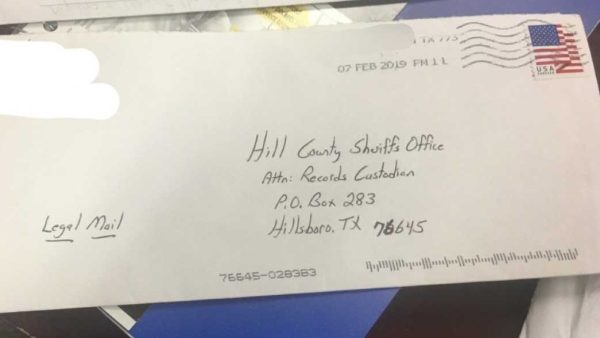 TX 773
07 FEB 2019 PM 1 L
USA
Hill County Shuriffs Office
Attn: Records Custodian
P.O. Box 283
Hillsboro, TX 76645
Legal Mail
76645-028383